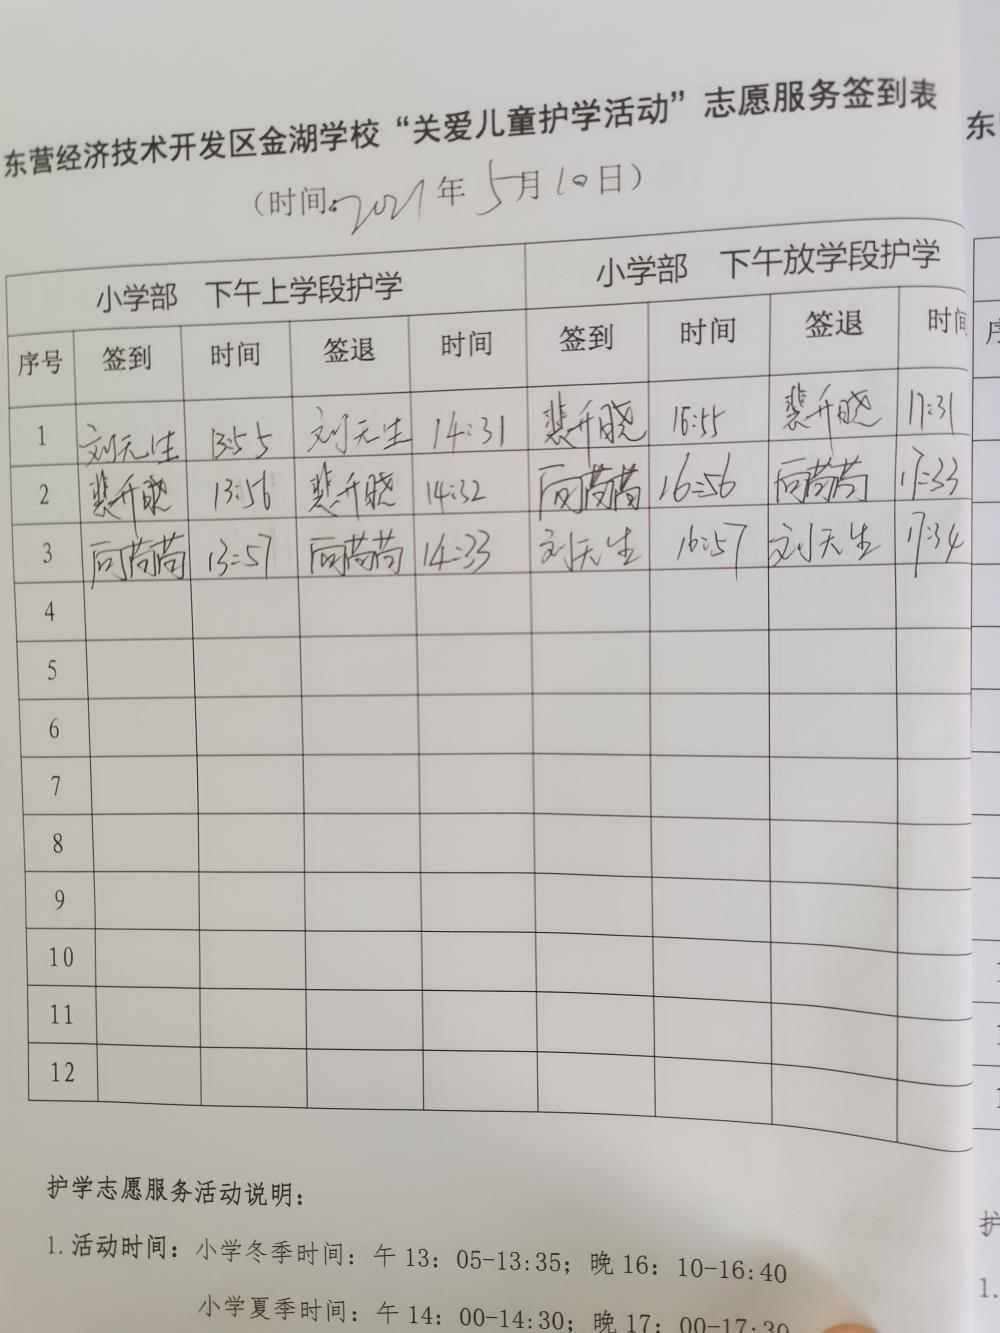 东营经济技术开发区金湖学校“关爱儿童护学活动”志愿服务签到表
（时间：2021年5月10日）
小学部 下午上学段护学 小学部 下午放学段护学
序号 签到 时间 签退 时间 签到 时间 签退 时间
1 刘天生 13:55 刘天生 14:31 裴升晓 16:55 裴升晓 17:31
2 裴升晓 13:56 裴升晓 14:32 16:56 17:33
3 13:57 14:33 刘天生 16:57 刘天生 17:34
4
5
6
7
8
9
10
11
12
护学志愿服务活动说明：
1.活动时间：小学冬季时间：午13：05-13:35；晚16：10-16:40
小学夏季时间：午14：00-14:30；晚17：00-17:30
东
护
1.